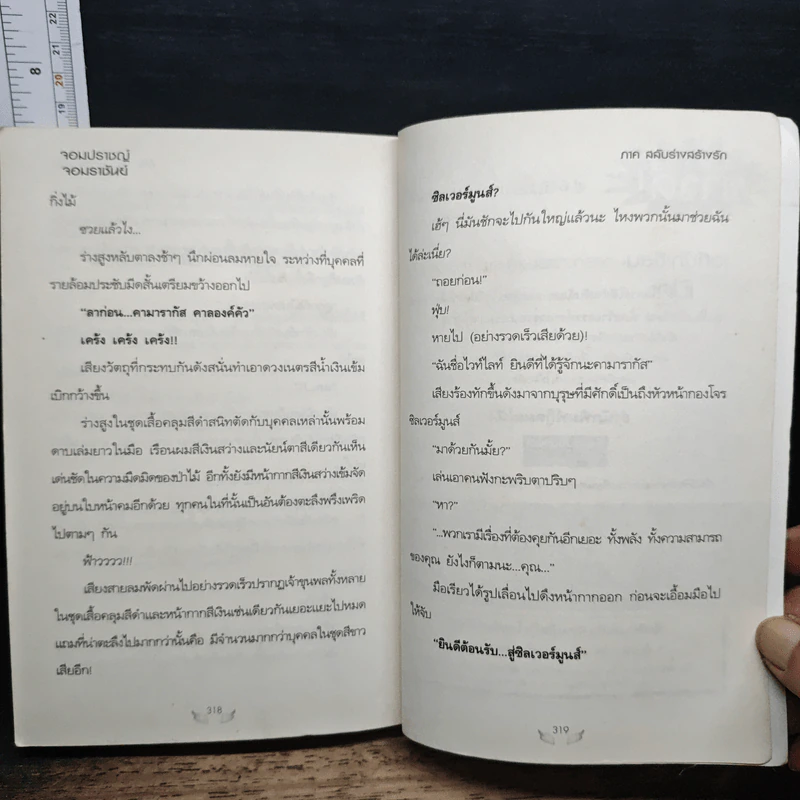 8
22
21
20
19
จอมปราชญ์
จอมราชันย์
กิ่งไม้
ซวยแล้วไง...
ร่างสูงหลับตาลงช้าๆ นึกผ่อนลมหายใจ ระหว่างที่บุคคลที่
รายล้อมประชับมีดสั้นเตรียมขว้างออกไป
"ลาก่อน...คามารากัส คาลองค์คัว"
เคร้ง เคร้ง เคร้ง!!
เสียงวัตถุที่กระทบกันดังสนั่นทำเอาดวงเนตรสีน้ำเงินเข้ม
เบิกกว้างขึ้น
ร่างสูงในชุดเสื้อคลุมสีดำสนิทตัดกับบุคคลเหล่านั้นพร้อม
ดาบเล่มยาวในมือ เรือนผมสีเงินสว่างและนัยน์ตาสีเดียวกันเห็น
เด่นชัดในความมืดมิดของป่าไม้ อีกทั้งยังมีหน้ากากสีเงินสว่างเข้มจัด
อยู่บนใบหน้าคมอีกด้วย ทุกคนในที่นั้นเป็นอันต้องตะลึงพรึงเพริด
ไปตามๆ กัน
ฟ้าวววว!!!
เสียงสายลมพัดผ่านไปอย่างรวดเร็วปรากฏเจ้าขุนพลทั้งหลาย
ในชุดเสื้อคลุมสีดำและหน้ากากสีเงินเช่นเดียวกันเยอะแยะไปหมด
แถมที่น่าตะลึงไปมากกว่านั้นคือ มีจำนวนมากกว่าบุคคลในชุดสีขาว
เสียอีก!
318
ภาค สลับร่างสร้างรัก
ซิลเวอร์มูนส์?
เฮ้ๆ นี่มันชักจะไปกันใหญ่แล้วนะ ไหงพวกนั้นมาช่วยฉัน
ได้ล่ะเนี่ย?
"ถอยก่อน!"
ฟุ่บ!
หายไป (อย่างรวดเร็วเสียด้วย)!
"ฉันชื่อไวท์ไลท์ ยินดีที่ได้รู้จักนะคามารากัส"
เสียงร้องทักขึ้นดังมาจากบุรุษที่มีศักดิ์เป็นถึงหัวหน้ากองโจร
ซิลเวอร์มูนส์
"มาด้วยกันมั้ย?"
เล่นเอาคนฟังกะพริบตาปริบๆ
"หา?"
"...พวกเรามีเรื่องที่ต้องคุยกันอีกเยอะ ทั้งพลัง ทั้งความสามารถ
ของคุณ ยังไงก็ตามนะ...คุณ..."
มือเรียวได้รูปเลื่อนไปดึงหน้ากากออก ก่อนจะเอื้อมมือไป
ให้จับ
"ยินดีต้อนรับ...สู่ซิลเวอร์มูนส์"
319